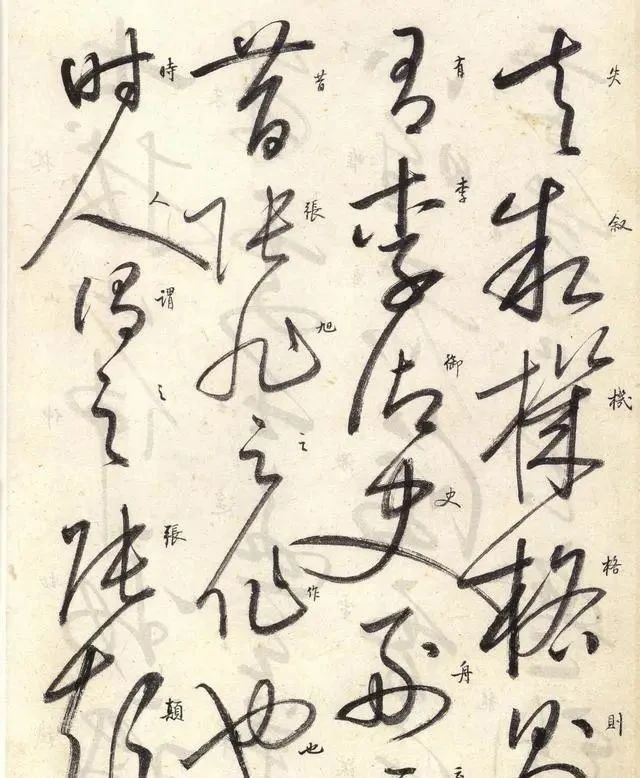 失叙機格則
有李御史舟云
昔張旭之作也
時人謂之張顛